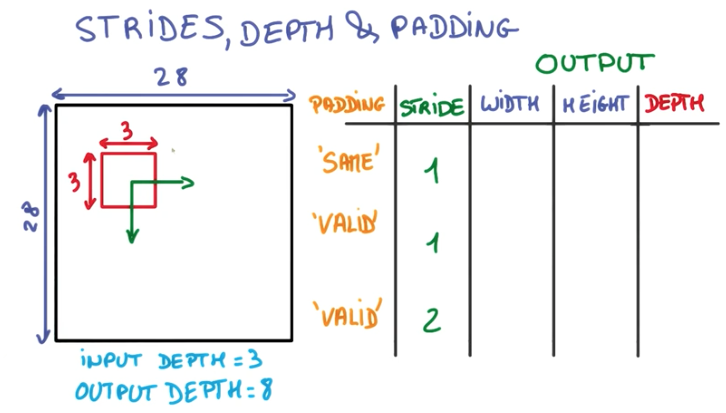 STRIDES, DEPTH & PADDING
28
28
3
3
INPUT DEPTH = 3
OUTPUT DEPTH = 8
OUTPUT
PADDING STRIDE WIDTH HEIGHT DEPTH
'SAME' 1
'VALID' 1
'VALID' 2